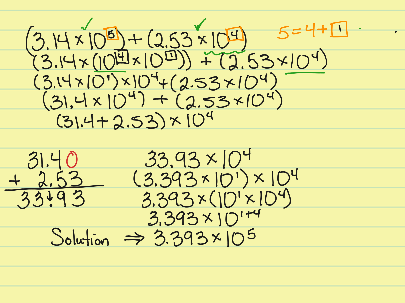 (3.14 × 10⁵) + (2.53 × 10⁴) 5 = 4 + 1
(3.14 × (10⁴ × 10¹)) + (2.53 × 10⁴)
(3.14 × 10¹) × 10⁴ + (2.53 × 10⁴)
(31.4 × 10⁴) + (2.53 × 10⁴)
(31.4 + 2.53) × 10⁴
31.40
+ 2.53
33.93
33.93 × 10⁴
(3.393 × 10¹) × 10⁴
3.393 × (10¹ × 10⁴)
3.393 × 10¹⁺⁴
Solution ⇒ 3.393 × 10⁵